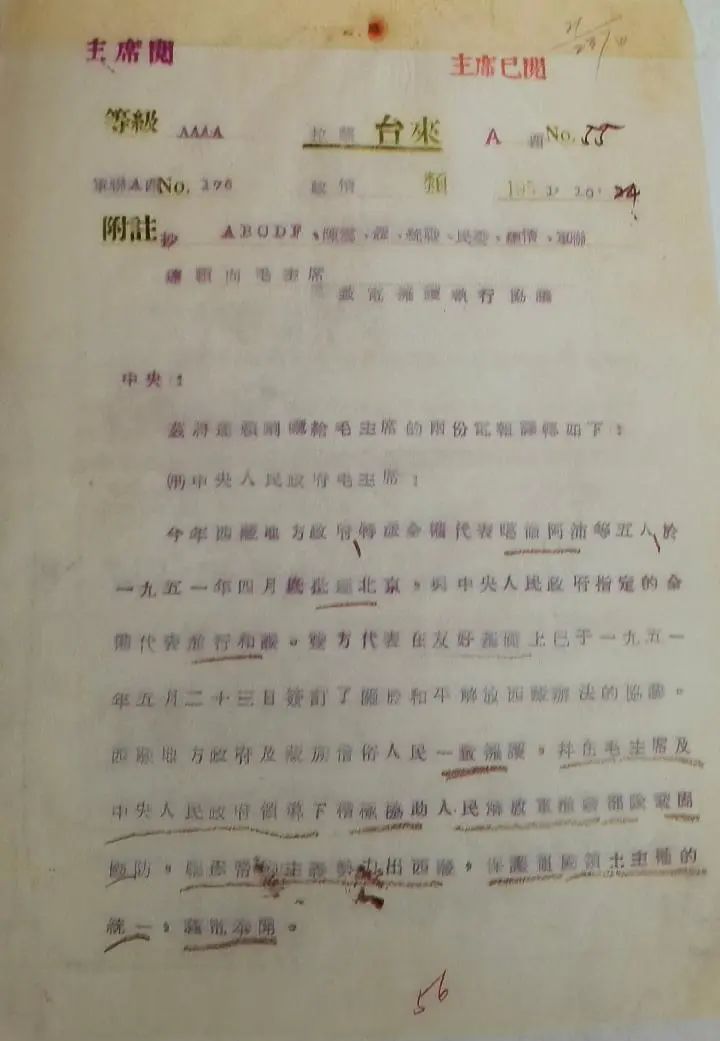 主席閱
主席已閱
等級 AAAA 拉薩 台來 A 酉 No. 55
No. 176 政情 類 195
附註 抄 ABCDF、陳雲、統戰、民委、總情、軍聯
達賴向毛主席
致電擁護執行協議
中央:
茲將達賴喇嘛給毛主席的兩份電報譯轉如下:
中央人民政府毛主席:
今年西藏地方政府特派全權代表噶倫阿沛等五人於
一九五一年四月底抵達北京。與中央人民政府指定的全
權代表進行和談。雙方代表在友好基礎上已于一九五一
年五月二十三日簽訂了關於和平解放西藏辦法的協議。
西藏地方政府及藏族僧俗人民一致擁護。并在毛主席及
中央人民政府領導下積極協助人民解放軍進藏部隊鞏固
國防。驅逐帝國主義勢力出西藏。保護祖國領土主權的
統一。謹電奉聞。
56